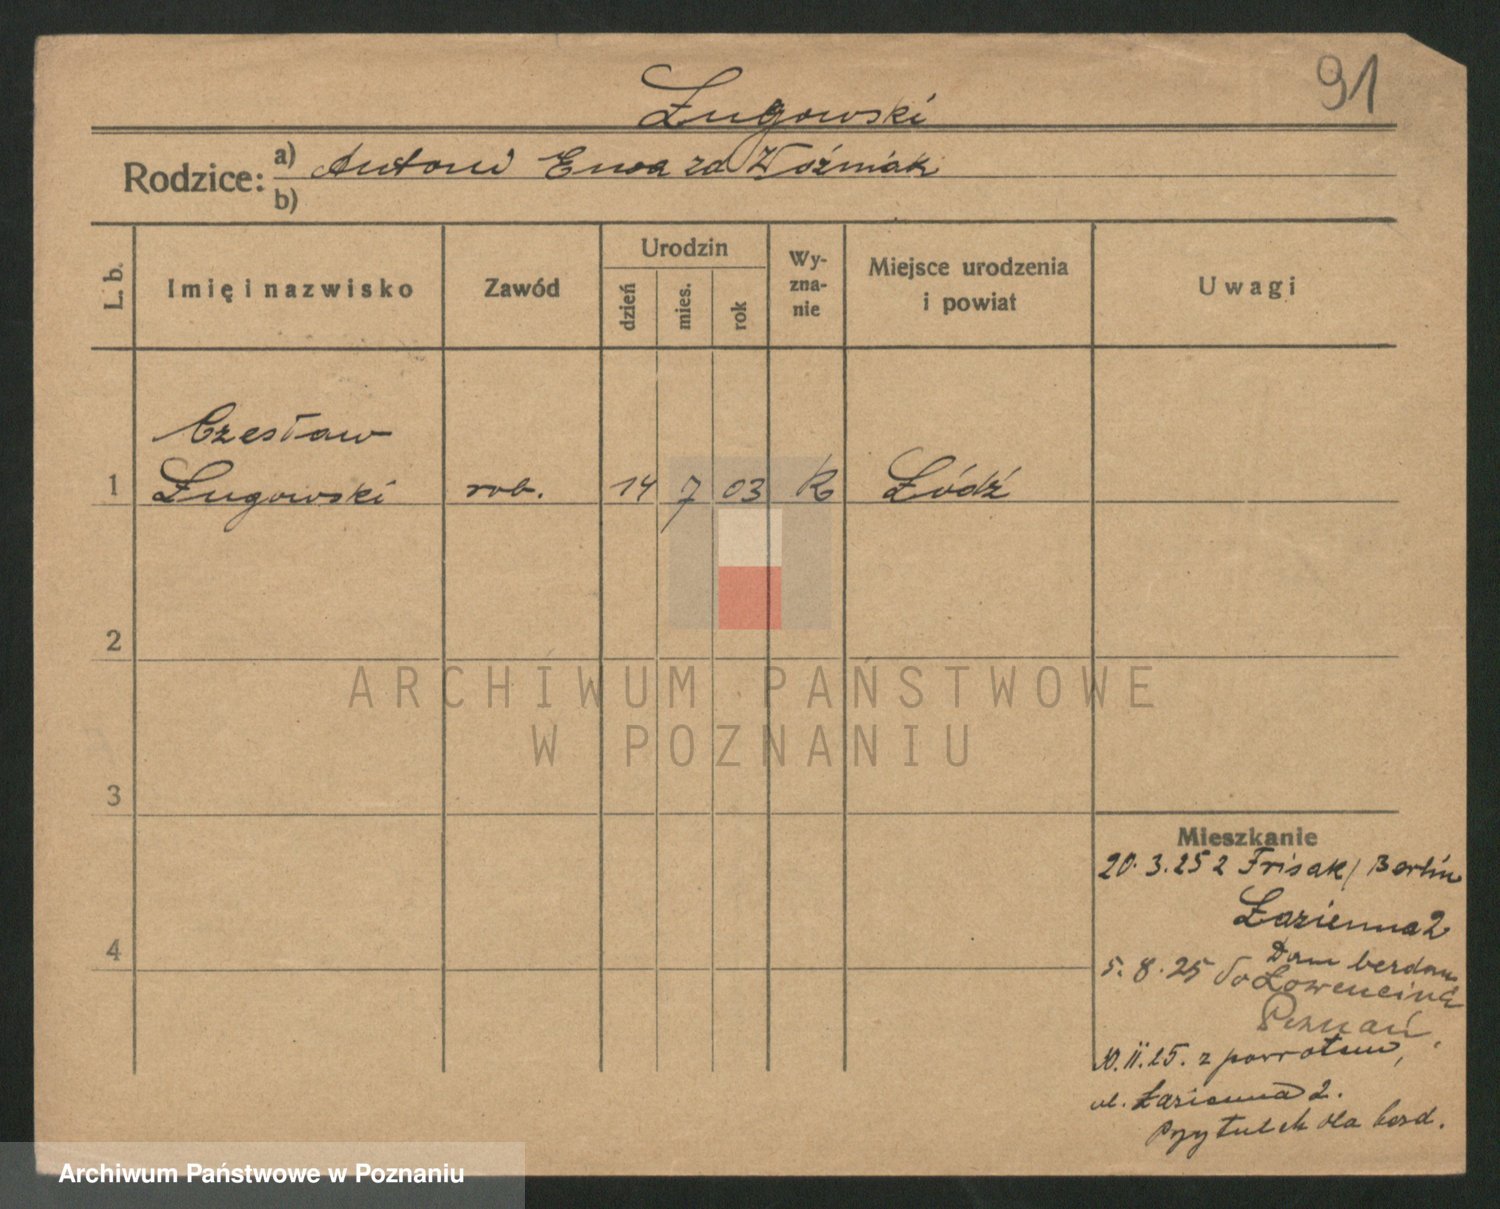 91
Ługowski
Rodzice: a) Antoni Ewa zd Woźniak
b)
L. b.
Imię i nazwisko
Zawód
Urodzin
dzień
mies.
rok
Wy-
zna-
nie
Miejsce urodzenia
i powiat
Uwagi
Czesław
1 Ługowski rob. 14 7 03 K Łódź
2
ARCHIWUM PAŃSTWOWE
W POZNANIU
3
4
Mieszkanie
20.3.25 z Frisak/Berlin
Łazienna 2
Dom bezdom
5.8.25 do
Poznań,
z powrotem,
ul. Łazienna 2.
Przytułek dla bezd.
Archiwum Państwowe w Poznaniu